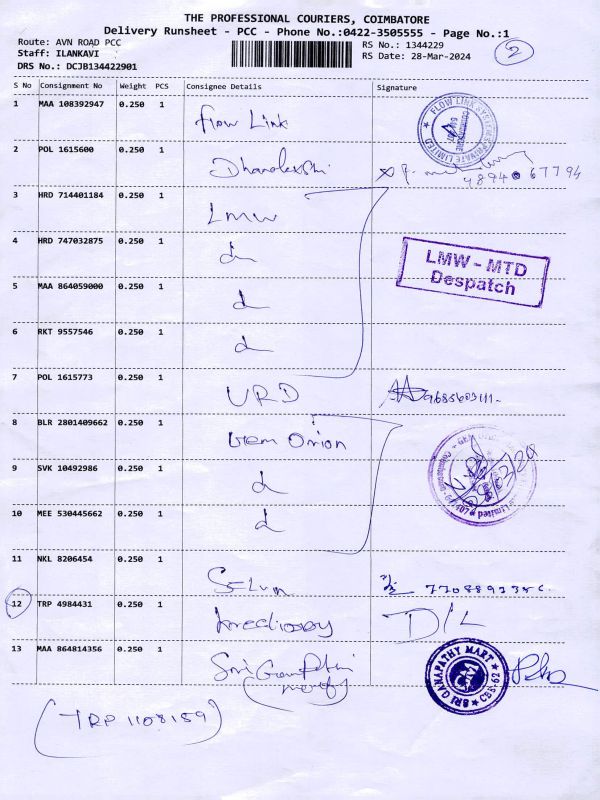 THE PROFESSIONAL COURIERS, COIMBATORE
Delivery Runsheet - PCC - Phone No.:0422-3505555 - Page No.:1
Route: AVN ROAD PCC
RS No.: 1344229
2
Staff: ILANKAVI
RS Date: 28-Mar-2024
DRS No.: DCJB134422901
S No Consignment No Weight PCS Consignee Details Signature
1 MAA 108392947 0.250 1 Flow Link
FLOW LINK SYSTEMS PRIVATE LIMITED
2 POL 1615600 0.250 1
67794
3 HRD 714401184 0.250 1 LMW
4 HRD 747032875 0.250 1
LMW - MTD
Despatch
5 MAA 864059000 0.250 1
6 RKT 9557546 0.250 1
7 POL 1615773 0.250 1 URD
8 BLR 2801409662 0.250 1 Gem Orion
9 SVK 10492986 0.250 1
Limited
10 MEE 530445662 0.250 1
11 NKL 8206454 0.250 1 Selva
12 TRP 4984431 0.250 1 D/L
13 MAA 864814356 0.250 1 Sri Ganapathi
SRI GANAPATHY MART
CBE-62
(TRP 1108159)